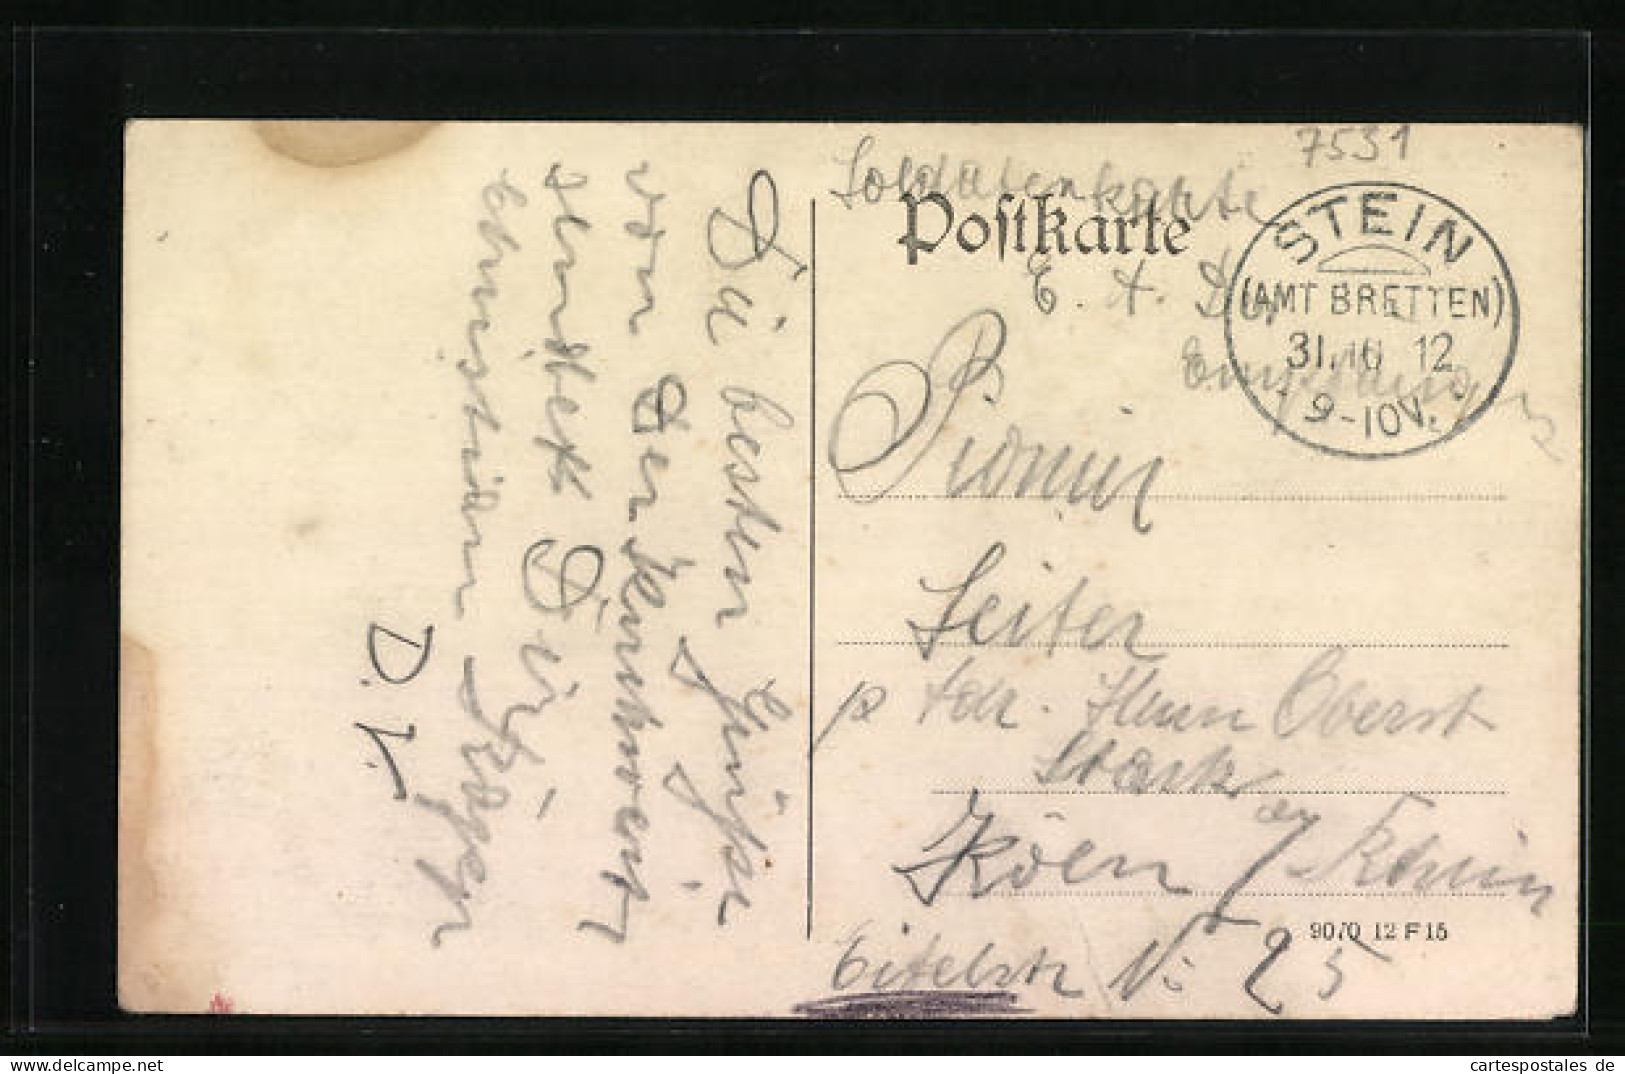 7531
Soldatenkarte
Postkarte
E. A. Des
Empfängers
STEIN
(AMT BRETTEN)
31.10 12
9-10V.
Pionier
Seiter
p adr. Herrn Oberst
Köln a/ Rhein
Eifelstr No 25
9070 12 F 15
Die besten Grüße
von der
sendet Dir
Christian
D. V.
cartespostales de